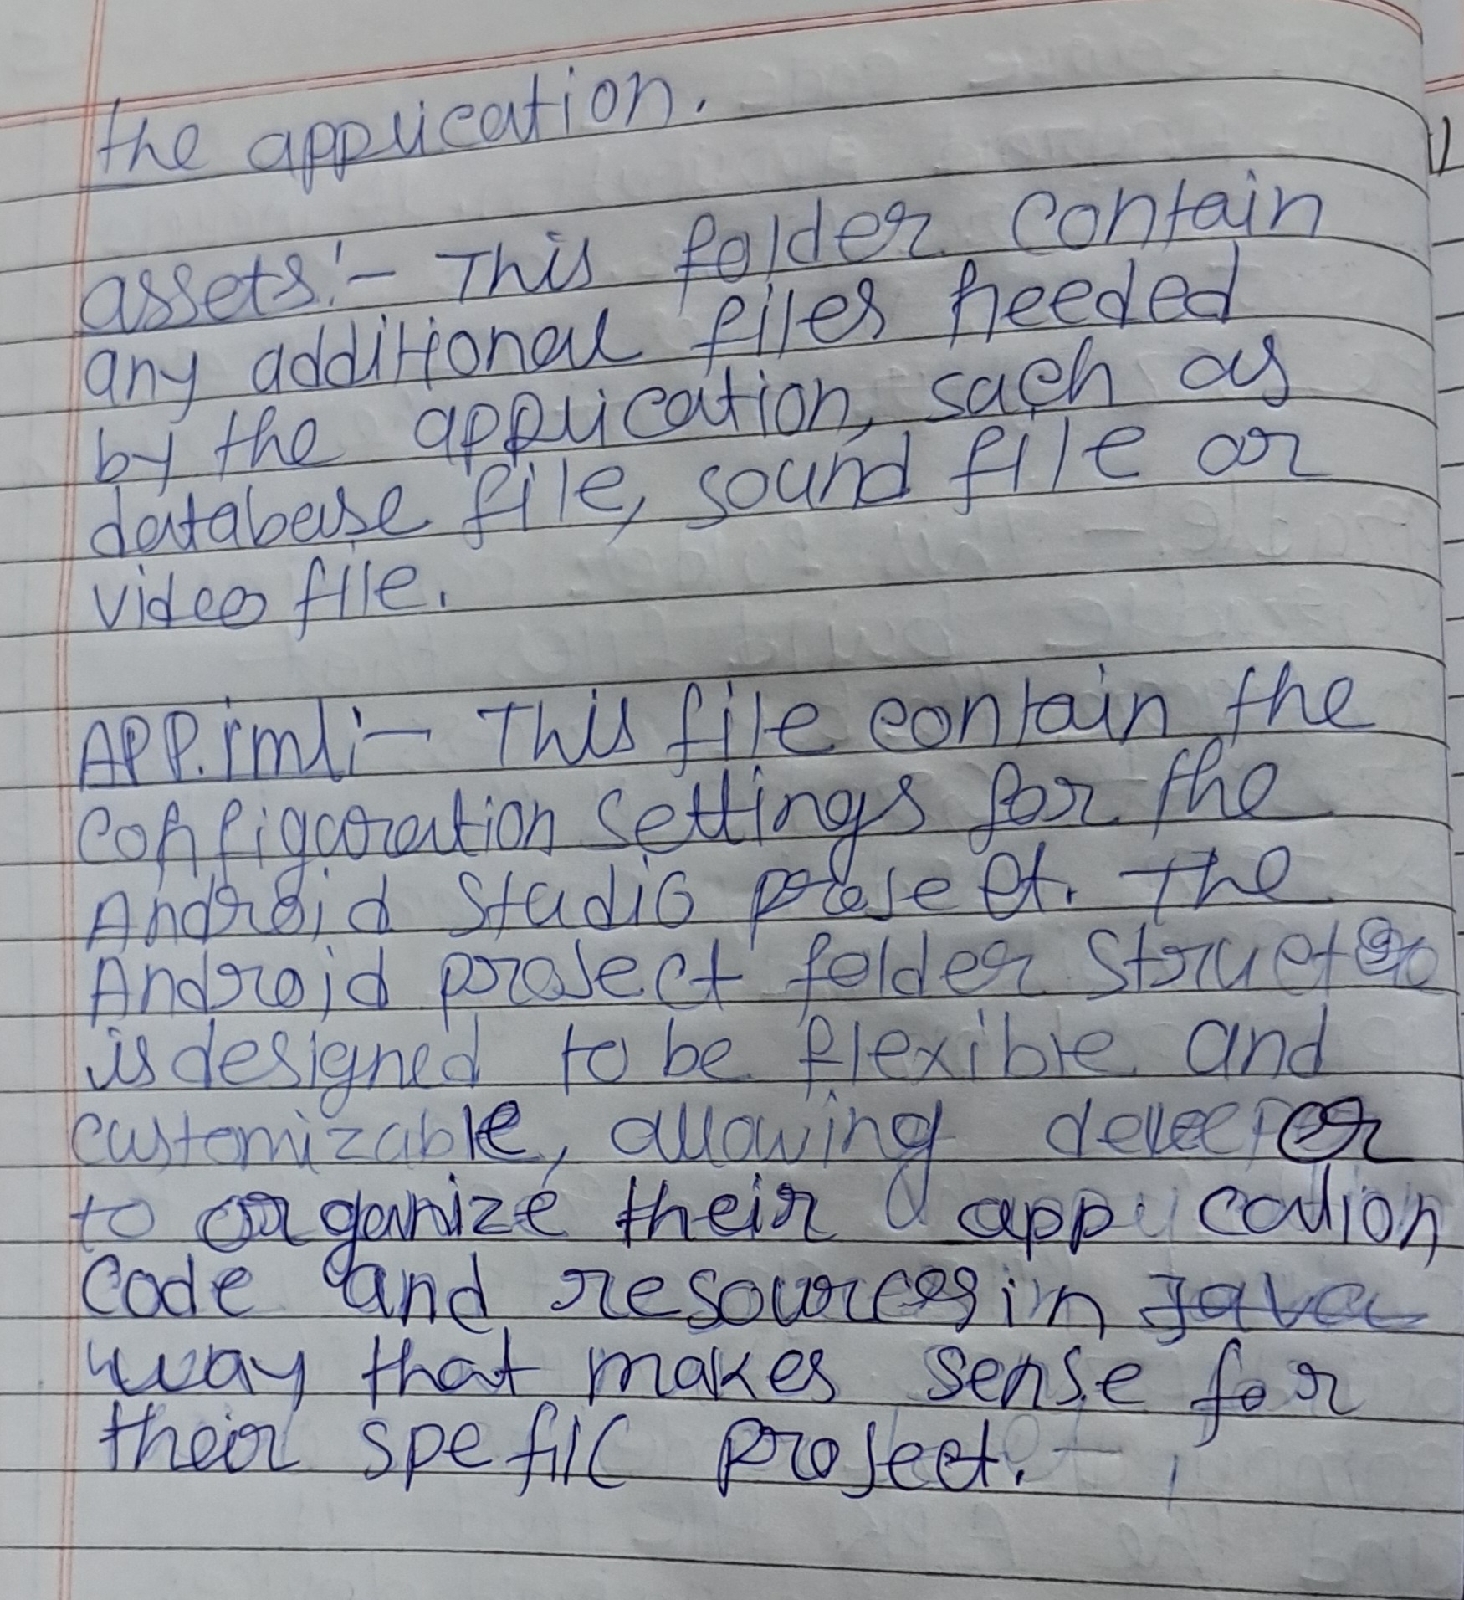 the application.
assets:- This folder contain
any additional files needed
by the application, such as
database file, sound file or
video file.
APP.iml:- This file contain the
configuration settings for the
Android Studio project. The
Android project folder Struct
is designed to be flexible and
customizable, allowing
to organize their application
Code and resources in Java
way that makes sense for
their spefilc project.